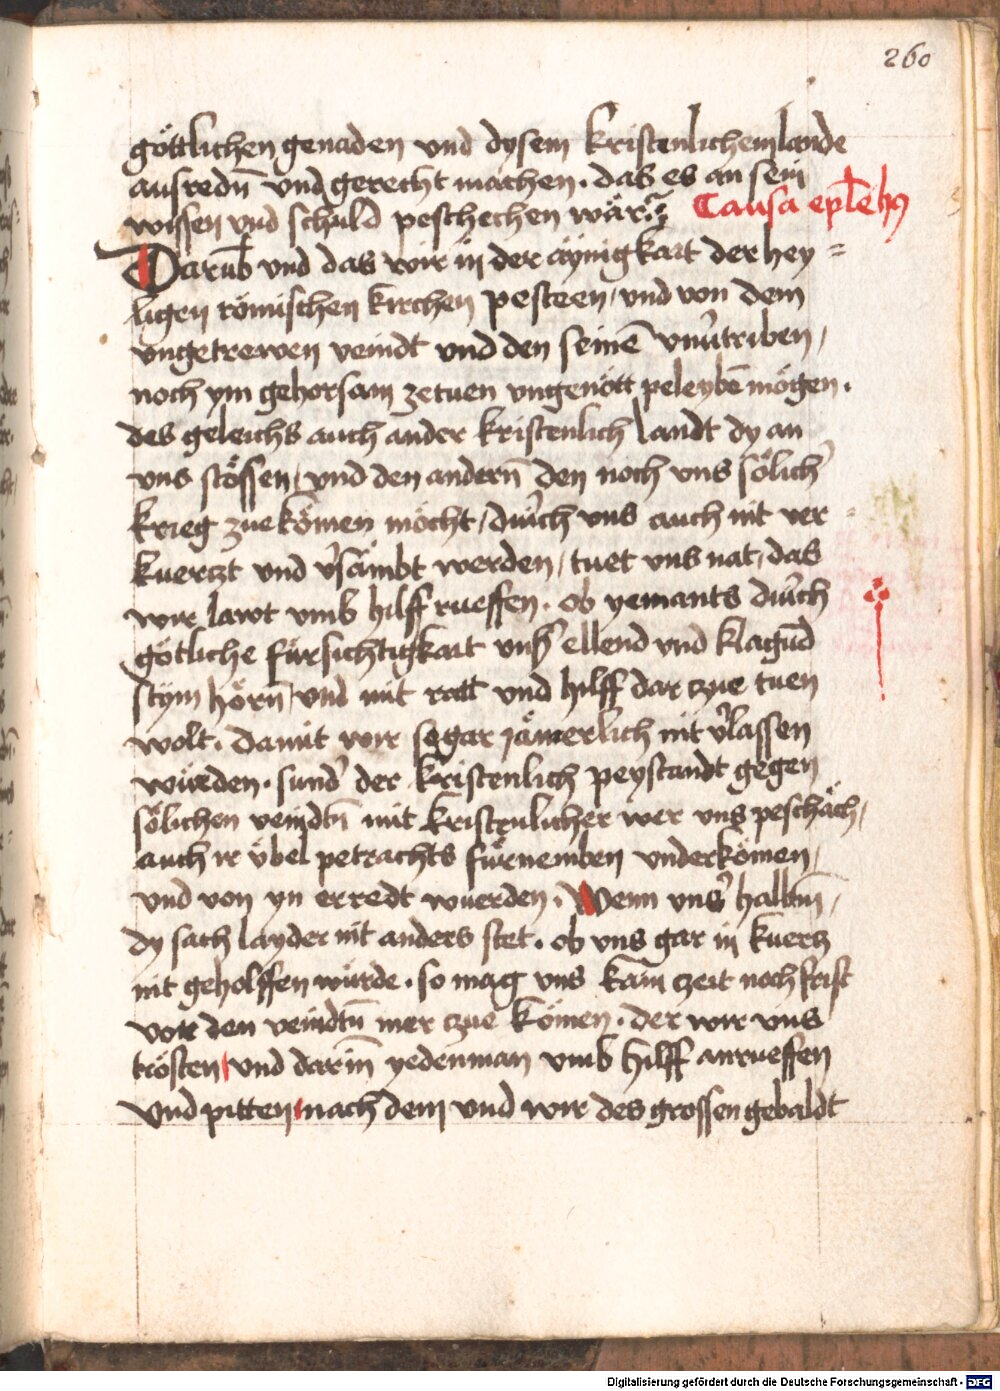 260
göttlichen genaden vnd dysem kristenlichem lande
ausredn̄ vnd gerecht machen. das es an sein
wissen vnd schuld peschechen wär.
Causa
Darumb vnd das wir in der aynigkait der hey=
ligen römischen kirchen pesteen, vnd von dem
vngetrewen veindt vnd den seinē vnu᷑triben,
noch ym gehorsam zetuen vngenött peleybē mögen.
des geleichs auch ander kristenlich landt dy an
vns stössen, vnd den andern̄ den noch vns sölich
krieg zuekömen möcht, durch vns auch nit ver=
kuertzt vnd v᷑sambt werden, tuet vns nat, das
wir lawt vmb hilff rueffen. ob yemants durch
götliche fürsichtigkait vns᷑ ellend vnd klagūd
stym hörn̄, vnd mit ratt vnd hilff dar zue tuen
wolt. damit wir sogar jämerlich nit v᷑lassen
würden. sund᷑ der kristenlich peystandt gegen
sölichen veindtn̄ mit kristenlicher wer vns peschäch,
auch ir übel petrachts fürnemben vnderkömen,
vnd von yn erredt wuerden. Wenn vns᷑ halbm̄,
dy sach layder nit anders stet. ob vns gar in kuertz
nit geholffen würde. so mag vns kain zeit noch frist
vor den veindtn̄ mer zue kömen. der wir vns
trösten, vnd darin̄ yedenman vmb hilff anrueffen
vnd pitten, nach dem vnd wir des grossen gebaldt
Digitalisierung gefördert durch die Deutsche Forschungsgemeinschaft - DFG